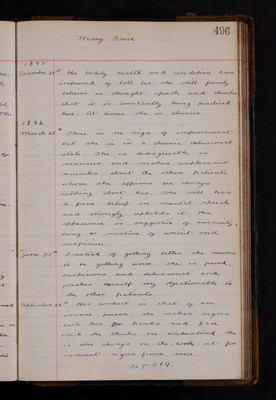 496
Mary Reid
1895
December 31st Her bodily health and condition have
improved of late but she still firmly
believes in thought speech and thinks
that it is constantly being practised
here. At times she is abusive.
1896
March 25th There is no sign of improvement
but she is in a chronic delusional
state. She is disagreeable in
manner and makes unpleasant
remarks about the other patients
whom she affirms are always
talking about her. She still has
a firm belief in mental speech
and strongly upholds it. Her
appearance is suggestive of insanity,
being a mixture of conceit and
suspicion.
June 25th Instead of getting better she seems
to be getting worse. She is proud,
suspicious and delusional and
makes herself very objectionable to
the other patients.
September 25th Her conduct is that of an
insane person: she makes signs
with her hands and face
which she thinks are understood. She
is also always on the look out for
indecent signs from men.
To p. 519.